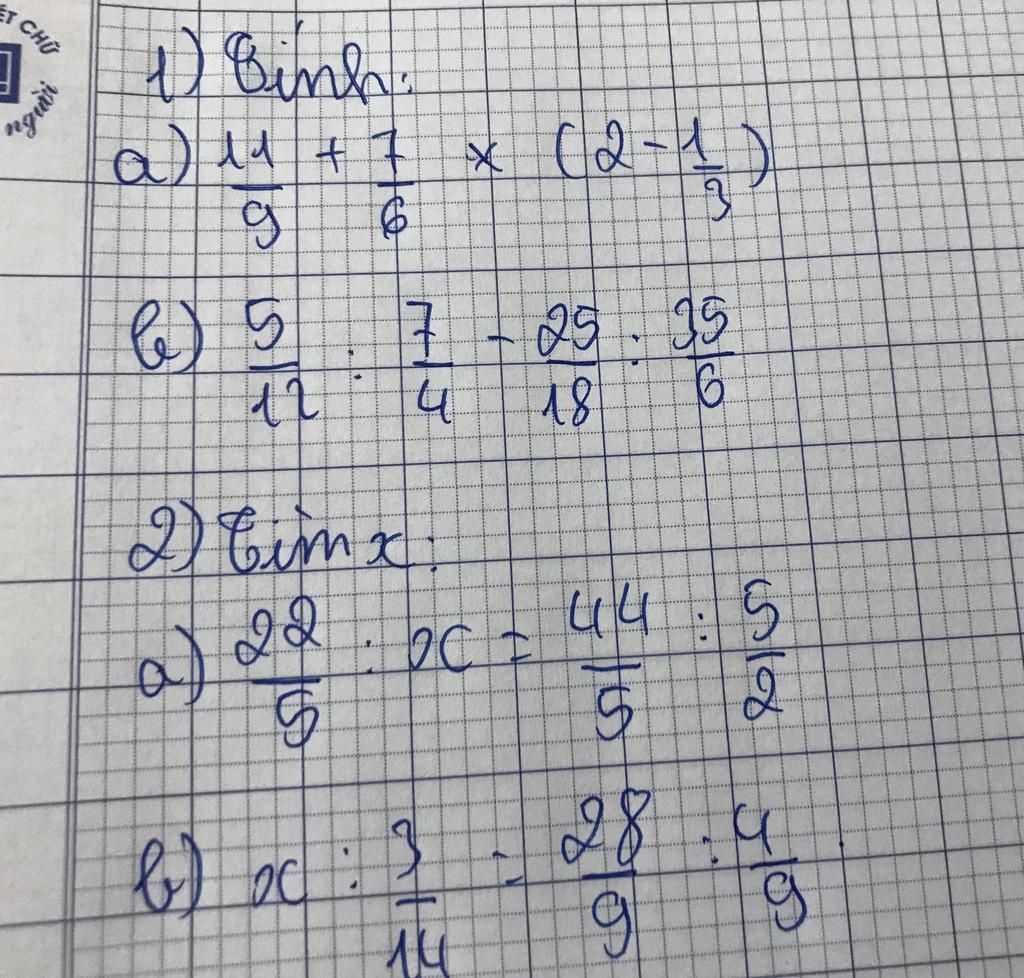 ẾT CHỮ
người
1) Tính:
a) 11/9 + 7/6 x (2 - 1/3)
b) 5/12 : 7/4 - 25/18 : 35/6
2) Tìm x:
a) 22/5 : x = 44/5 : 5/2
b) x : 3/14 = 28/9 : 4/9